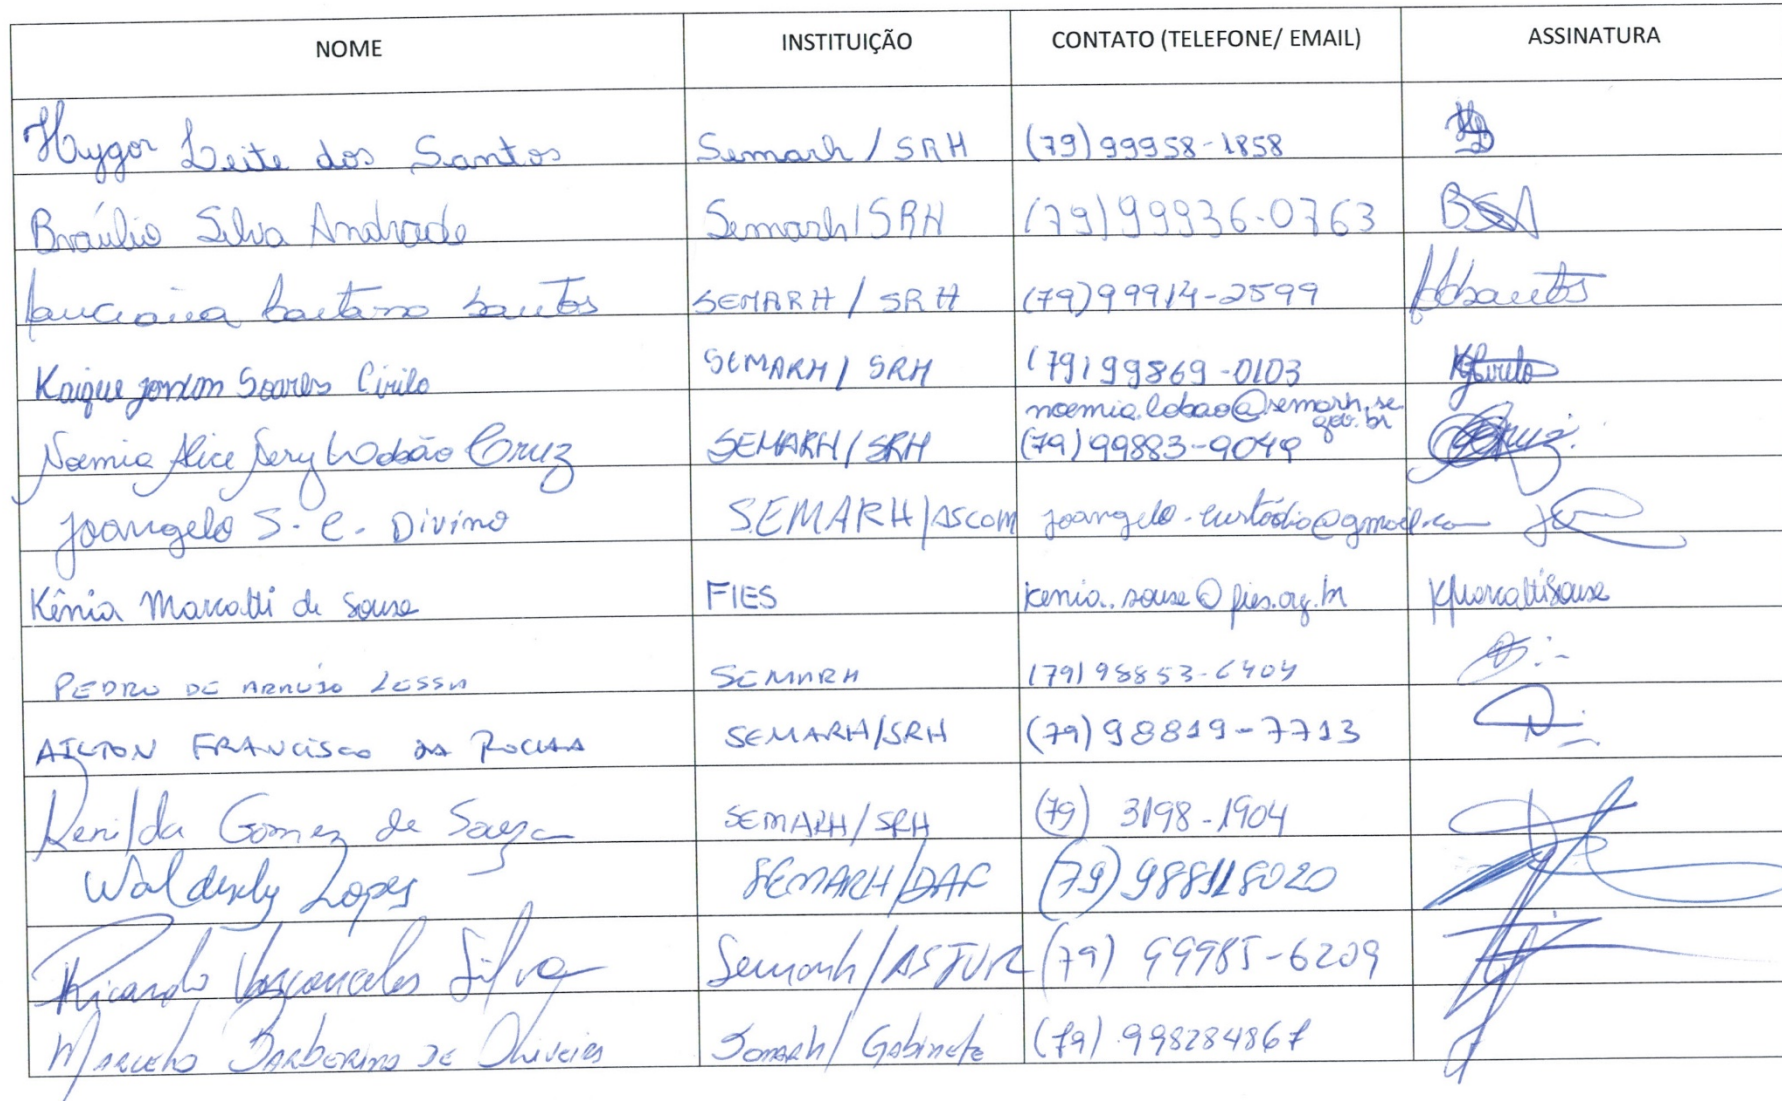 NOME INSTITUIÇÃO CONTATO (TELEFONE/ EMAIL) ASSINATURA
Hygor Leite dos Santos Semarh / SRH (79) 99958-1858
Bráulio Silva Andrade Semarh/SRH (79) 99936-0763 BSA
Luciana Caetano Santos SEMARH / SRH (79) 99914-2599
Kaique Soares Cirilo SEMARH / SRH (79) 99869-0103
noemia.lobao@semarh.se.gov.br
Noemia Alice Nery Lobão Cruz SEMARH/SRH (79) 99883-9049 Cruz
Joangelo S. C. Divino SEMARH/ASCOM joangelo.custodio@gmail.com
Kênia Marcatti de Sousa FIES kenia.sousa@fies.org.br KMarcattiSousa
PEDRO DE ARAUJO LESSA SEMARH (79) 98853-6404
AILTON FRANCISCO DA ROCHA SEMARH/SRH (79) 98819-7713
Renilda Gomes de Souza SEMARH/SRH (79) 3198-1904
Lopes SEMARH/DAF (79) 988118020
Ricardo Vasconcelos Silva Semarh/ASTUR (79) 99985-6209
Marcelo Barberino de Oliveira Semarh/ Gabinete (79) 998284867